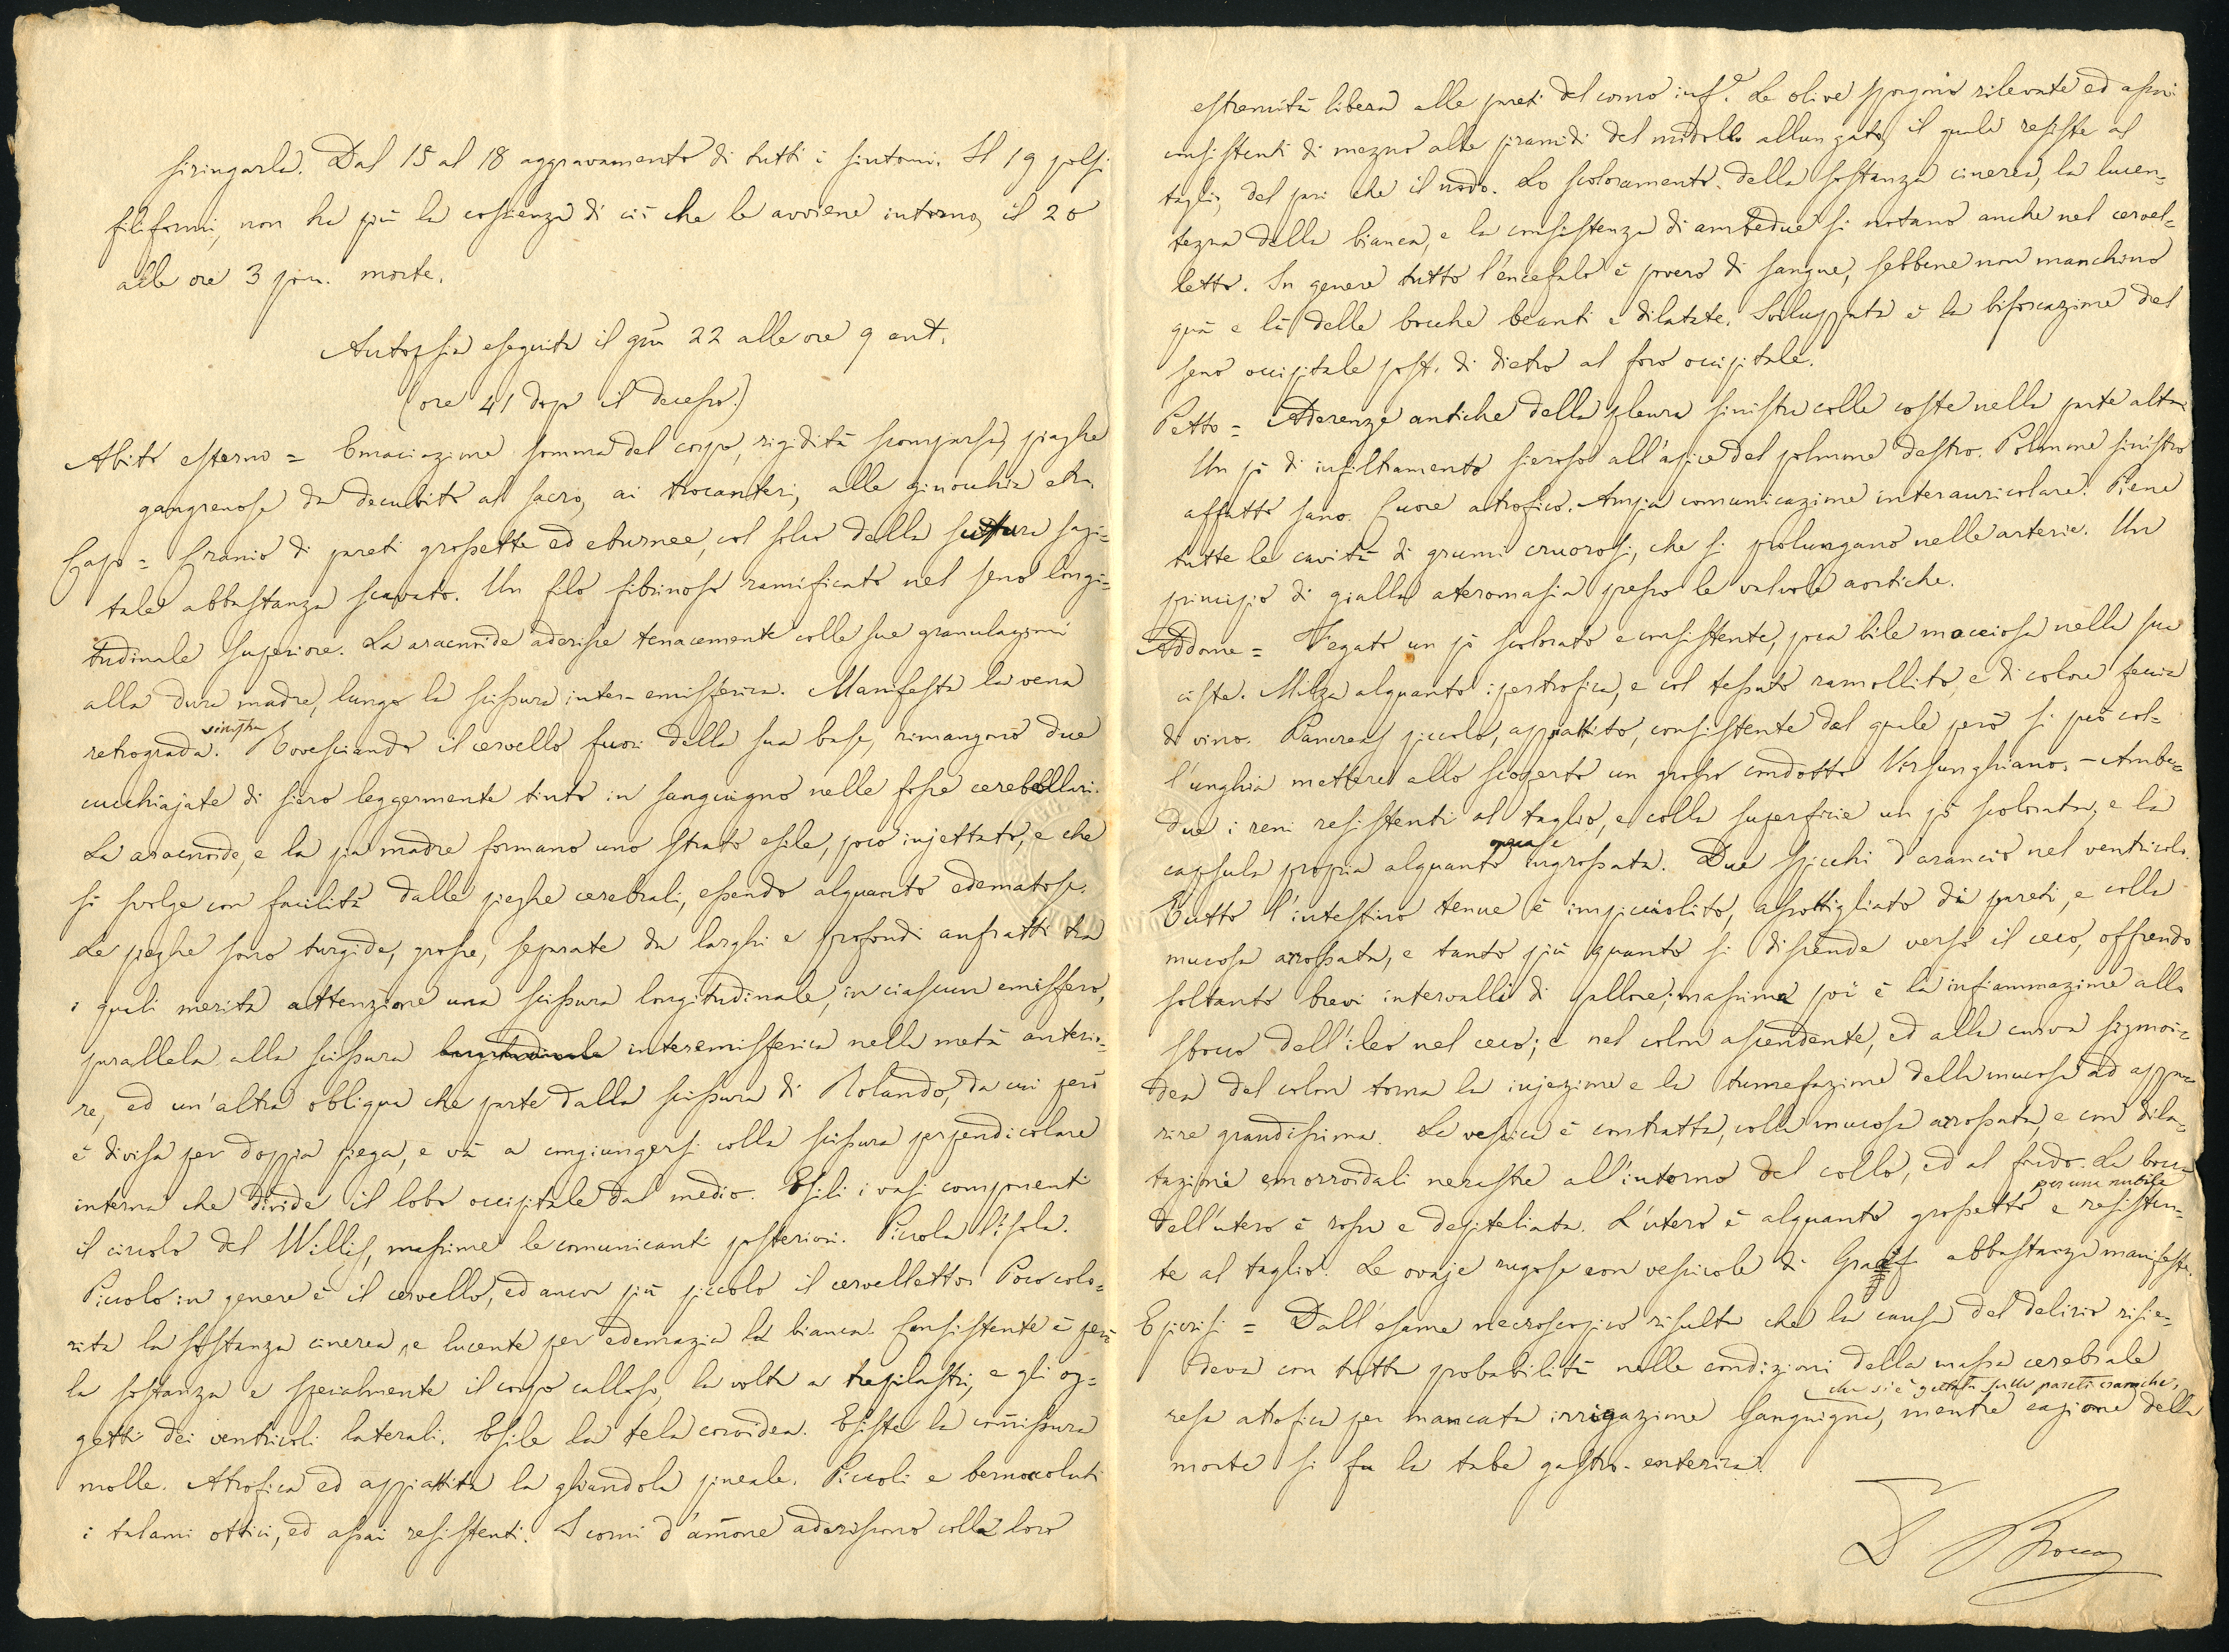 siringarla. Dal 15 al 18 aggravamento di tutti i sintomi. Il 19 polsi
filiformi, non ha più la coscienza di ciò che le avviene intorno, il 20
alle ore 3 pom. morte.
Autopsia eseguita il gno 22 alle ore 9 ant.
(ore 41 dopo il decesso.)
Abito esterno = Emaciazione somma del corpo, rigidità scomparsa, piaghe
gangrenose da decubito al sacro, ai trocanteri, alle ginocchia etc.
Capo = Cranio di pareti grossette ed eburnee, col solco della sutura sagi=
tale abbastanza scavato. Un filo fibrinoso ramificato nel seno longi=
tudinale superiore. La aracnoide aderisce tenacemente colle sue granulazioni
alla dura madre, lungo la scissura inter-emisferica. Manifesta la vena
sinistra
retrograda. Rovesciando il cervello fuori della sua base, rimangono due
cucchiajate di siero leggermente tinto in sanguigno nelle fosse cerebellari.
La aracnoide, e la pia madre formano uno strato esile, poco injettato, e che
si svolge con facilità dalle pieghe cerebrali, essendo alquanto edematose.
Le pieghe sono turgide, grosse, separate da larghi e profondi anfratti tra
i quali merita attenzione una scissura longitudinale, in ciascun emisfero,
parallela alla scissura longitudinale interemisferica nella metà anterio=
re, ed un'altra obliqua che parte dalla scissura di Rolando, da cui però
è divisa per doppia piega, e và a congiungersi colla scissura perpendicolare
interna che divide il lobo occipitale dal medio. Esili i vasi componenti
il circolo del Willis, massime le comunicanti posteriori. Piccola l'isola.
Piccolo in genere è il cervello, ed ancor più piccolo il cervelletto. Poco colo=
rita la sostanza cinerea, e lucente per edemazia la bianca. Consistente è però
la sostanza e specialmente il corpo calloso, la volta a tre pilastri, e gli og=
getti dei ventricoli laterali. Esile la tela coroidea. Esiste la comissura
molle. Atrofica ed appiattita la ghiandola pineale. Piccoli e bernoccoluti
i talami ottici, ed assai resistenti. I corni d'amone aderiscono colla loro
estremità libera alle pareti del corno infe. Le olive sporgono rilevate ed assai
consistenti di mezzo alle piramidi del midollo allungato, il quale resiste al
taglio, del pari che il nodo. Lo scoloramento della sostanza cinerea, la lucen=
tezza della bianca, e la consistenza di ambedue si notano anche nel cervel=
letto. In genere tutto l'encefalo è povero di sangue, sebbene non manchino
quà e là delle bocche beanti e dilatate. Sviluppata è la biforcazione del
seno occipitale post. di dietro al foro occipitale.
Petto = Aderenze antiche della pleura sinistra colle coste nella parte alta.
Un pò di infiltramento sieroso all'apice del polmone destro. Polmone sinistro
affatto sano. Cuore atrofico. Ampia comunicazione interauricolare. Piene
tutte le cavità di grumi cruorosi, che si prolungano nelle arterie. Un
principio di gialla ateromasia presso le valvole aortiche.
Addome = Fegato un pò scolorato e consistente, poca bile mocciosa nella sua
ciste. Milza alquanto ipertrofica, e col tessuto ramollito, e di colore feccia
di vino. Pancreas piccolo, appiattito, consistente dal quale però si può col=
l'unghia mettere allo scoperto un grosso condotto Virsunghiano. - Ambe=
due i reni resistenti al taglio, e colla superficie un pò scolorata, e la
quasi
capsula propria alquanto ingrossata. Due spicchi d'arancio nel ventricolo.
Tutto l'intestino tenue è impicciolito, assottigliato di pareti, e colla
mucosa arrossata, e tanto più quanto si discende verso il ceco, offrendo
soltanto brevi intervalli di pallore; massima poi è la infiammazione allo
sbocco dell'ileo nel ceco; e nel colon ascendente, ed alla curva sigmoi=
dea del colon torna la injezione e la tumefazione della mucosa ad appa=
rire grandissima. La vescica è contratta, colla mucosa arrossata, e con dila=
tazioni emorroidali nerastre all'intorno del collo, ed al fondo. La bocca
per una nubile
dell'utero è rossa e depiteliata. L'utero è alquanto grossetto e resisten=
te al taglio. Le ovaje rugose con vescicole di Graaf abbastanza manifeste.
Epicrisi = Dall'esame necroscopico risulta che la causa del delirio risie=
deva con tutta probabilità nelle condizioni della massa cerebrale
che si è gettata sulle pareti craniche,
resa atrofica per mancata irrigazione sanguigna, mentre cagione della
morte si fu la tabe gastro-enterica.